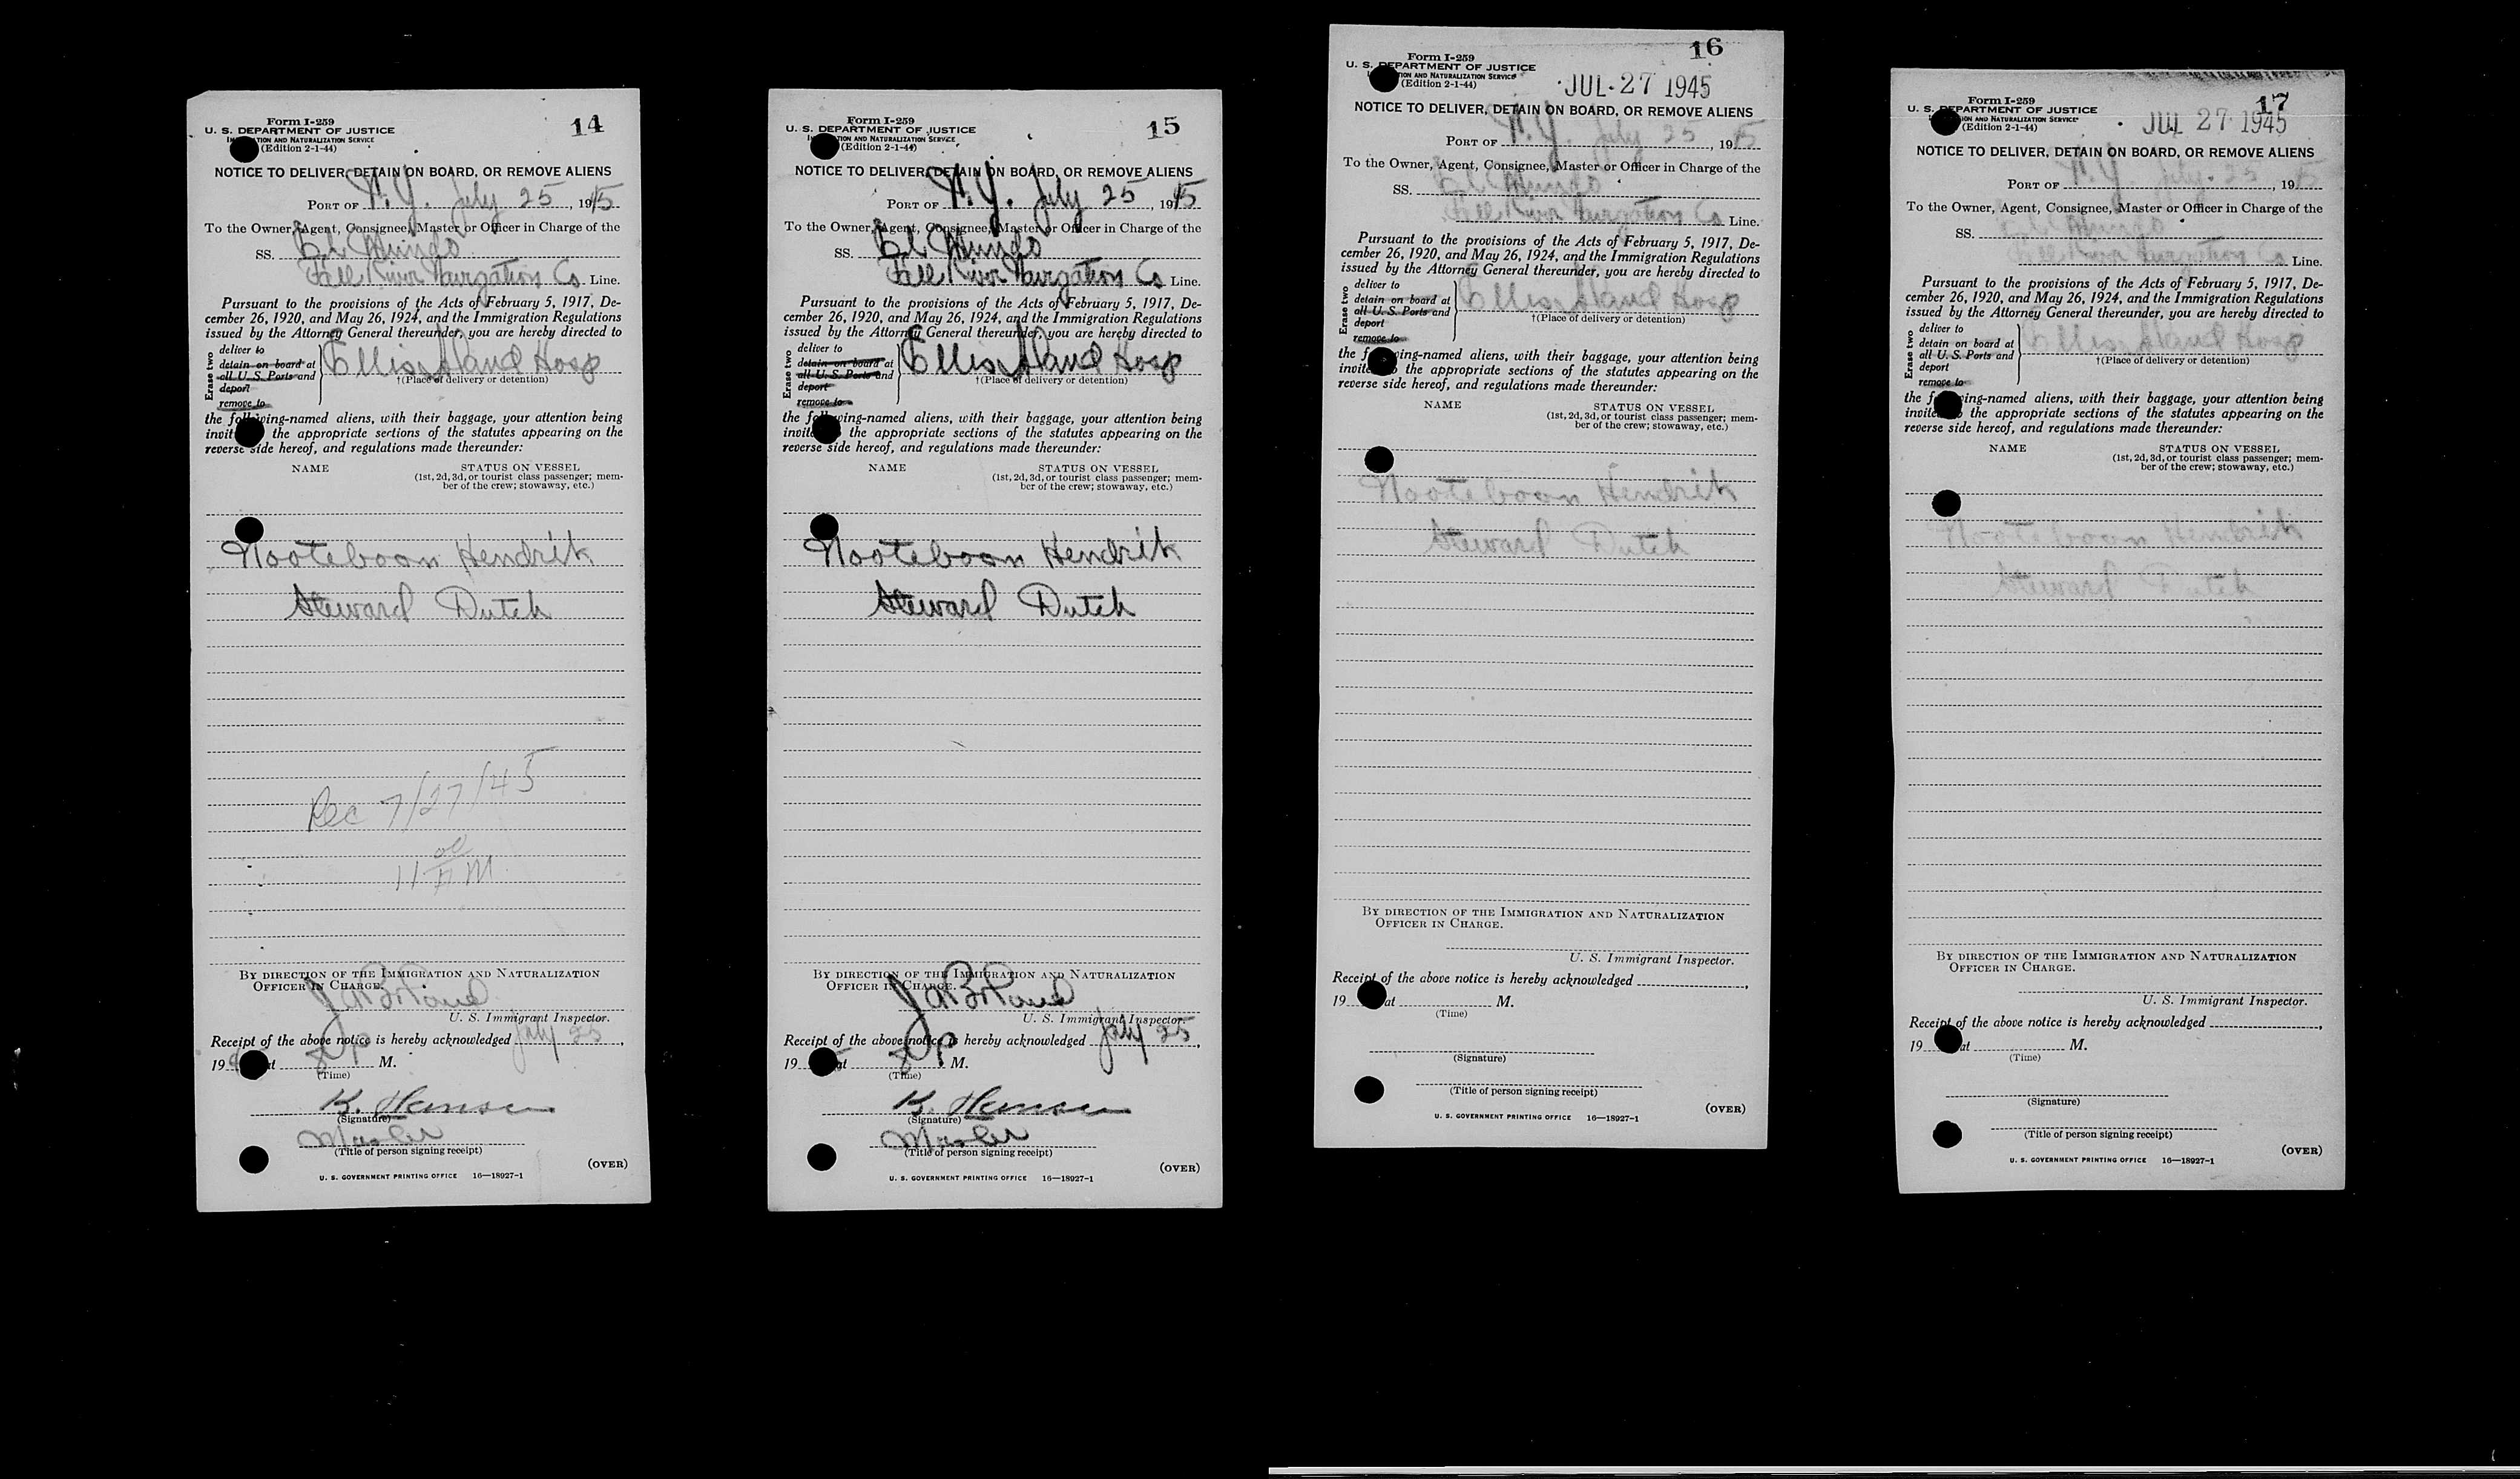 14
Form I-259
U. S. DEPARTMENT OF JUSTICE
TION AND NATURALIZATION SERVICE
(Edition 2-1-44)
NOTICE TO DELIVER, DETAIN ON BOARD, OR REMOVE ALIENS
PORT OF N.Y. July 25, 1945
To the Owner, Agent, Consignee, Master or Officer in Charge of the
SS. El Mundo
Fall River Navigation Co Line.
Pursuant to the provisions of the Acts of February 5, 1917, De-
cember 26, 1920, and May 26, 1924, and the Immigration Regulations
issued by the Attorney General thereunder, you are hereby directed to
Erase two
deliver to
detain on board at
all U. S. Ports and
deport
remove to
Ellis Island Hosp
†(Place of delivery or detention)
the following-named aliens, with their baggage, your attention being
invit the appropriate sections of the statutes appearing on the
reverse side hereof, and regulations made thereunder:
NAME STATUS ON VESSEL
(1st, 2d, 3d, or tourist class passenger; mem-
ber of the crew; stowaway, etc.)
Nooteboom Hendrik
Steward Dutch
Rec 7/27/45
11 00 M
BY DIRECTION OF THE IMMIGRATION AND NATURALIZATION
OFFICER IN CHARGE.
U. S. Immigrant Inspector.
Receipt of the above notice is hereby acknowledged July 25,
194 at 8 P M.
(Time)
K. Hansen
(Signature)
Master
(Title of person signing receipt)
(OVER)
U. S. GOVERNMENT PRINTING OFFICE 16—18927-1
15
Form I-259
U. S. DEPARTMENT OF JUSTICE
TION AND NATURALIZATION SERVICE
(Edition 2-1-44)
NOTICE TO DELIVER, DETAIN ON BOARD, OR REMOVE ALIENS
PORT OF N.Y. July 25, 1945
To the Owner, Agent, Consignee, Master or Officer in Charge of the
SS. El Mundo
Fall River Navigation Co Line.
Pursuant to the provisions of the Acts of February 5, 1917, De-
cember 26, 1920, and May 26, 1924, and the Immigration Regulations
issued by the Attorney General thereunder, you are hereby directed to
Erase two
deliver to
detain on board at
all U. S. Ports and
deport
remove to
Ellis Island Hosp
†(Place of delivery or detention)
the following-named aliens, with their baggage, your attention being
invite the appropriate sections of the statutes appearing on the
reverse side hereof, and regulations made thereunder:
NAME STATUS ON VESSEL
(1st, 2d, 3d, or tourist class passenger; mem-
ber of the crew; stowaway, etc.)
Nooteboom Hendrik
Steward Dutch
BY DIRECTION OF THE IMMIGRATION AND NATURALIZATION
OFFICER IN CHARGE.
U. S. Immigrant Inspector.
Receipt of the above notice is hereby acknowledged July 25,
19 at 8 P M.
(Time)
K. Hansen
(Signature)
Master
(Title of person signing receipt)
(OVER)
U. S. GOVERNMENT PRINTING OFFICE 16—18927-1
16
Form I-259
U. S. DEPARTMENT OF JUSTICE
TION AND NATURALIZATION SERVICE
(Edition 2-1-44)
JUL 27 1945
NOTICE TO DELIVER, DETAIN ON BOARD, OR REMOVE ALIENS
PORT OF N.Y. July 25, 1945
To the Owner, Agent, Consignee, Master or Officer in Charge of the
SS. El Mundo
Fall River Navigation Co Line.
Pursuant to the provisions of the Acts of February 5, 1917, De-
cember 26, 1920, and May 26, 1924, and the Immigration Regulations
issued by the Attorney General thereunder, you are hereby directed to
Erase two
deliver to
detain on board at
all U. S. Ports and
deport
remove to
Ellis Island Hosp
†(Place of delivery or detention)
the f ing-named aliens, with their baggage, your attention being
invite the appropriate sections of the statutes appearing on the
reverse side hereof, and regulations made thereunder:
NAME STATUS ON VESSEL
(1st, 2d, 3d, or tourist class passenger; mem-
ber of the crew; stowaway, etc.)
Nooteboom Hendrik
Steward Dutch
BY DIRECTION OF THE IMMIGRATION AND NATURALIZATION
OFFICER IN CHARGE.
U. S. Immigrant Inspector.
Receipt of the above notice is hereby acknowledged ,
19 at M.
(Time)
(Signature)
(Title of person signing receipt)
(OVER)
U. S. GOVERNMENT PRINTING OFFICE 16—18927-1
17
Form I-259
U. S. DEPARTMENT OF JUSTICE
ION AND NATURALIZATION SERVICE
(Edition 2-1-44)
JUL 27 1945
NOTICE TO DELIVER, DETAIN ON BOARD, OR REMOVE ALIENS
PORT OF N.Y. July 25, 1945
To the Owner, Agent, Consignee, Master or Officer in Charge of the
SS. El Mundo
Fall River Navigation Co Line.
Pursuant to the provisions of the Acts of February 5, 1917, De-
cember 26, 1920, and May 26, 1924, and the Immigration Regulations
issued by the Attorney General thereunder, you are hereby directed to
Erase two
deliver to
detain on board at
all U. S. Ports and
deport
remove to
Ellis Island Hosp
†(Place of delivery or detention)
the f ing-named aliens, with their baggage, your attention being
invite the appropriate sections of the statutes appearing on the
reverse side hereof, and regulations made thereunder:
NAME STATUS ON VESSEL
(1st, 2d, 3d, or tourist class passenger; mem-
ber of the crew; stowaway, etc.)
Nooteboom Hendrik
Steward Dutch
BY DIRECTION OF THE IMMIGRATION AND NATURALIZATION
OFFICER IN CHARGE.
U. S. Immigrant Inspector.
Receipt of the above notice is hereby acknowledged ,
19 at M.
(Time)
(Signature)
(Title of person signing receipt)
(OVER)
U. S. GOVERNMENT PRINTING OFFICE 16—18927-1